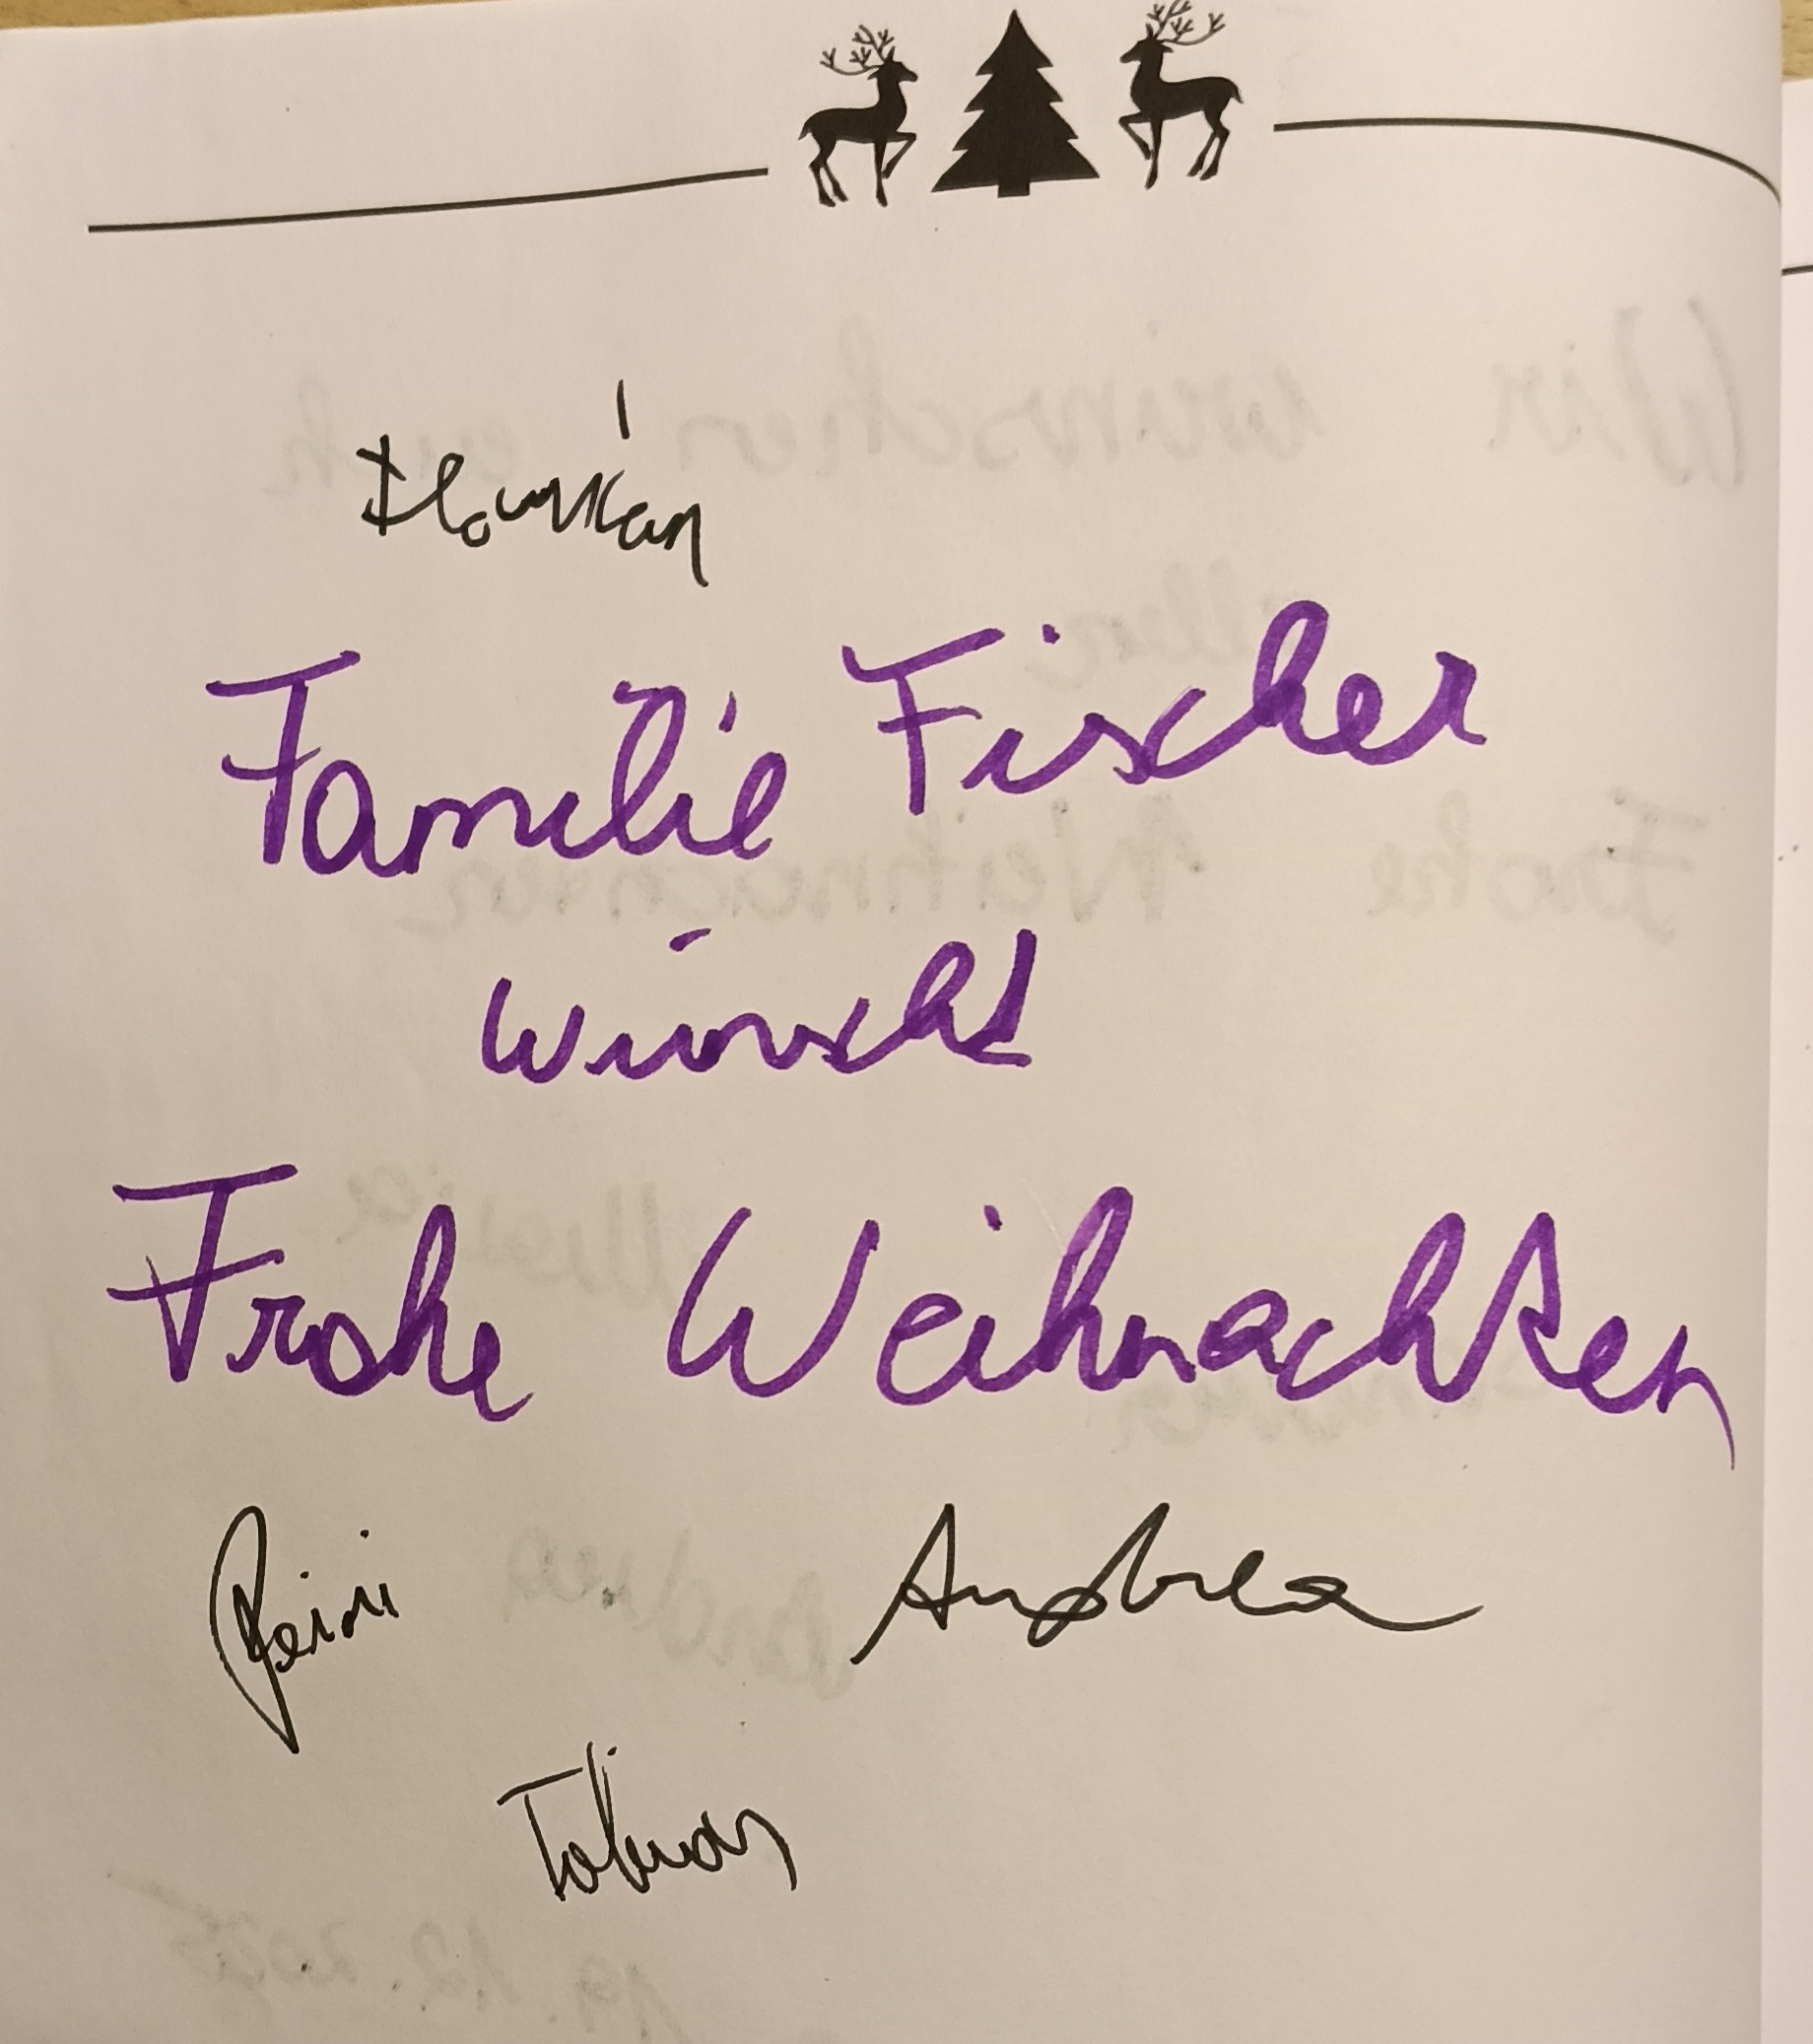 Florian
Familie Fischer
wünscht
Frohe Weihnachten
Andrea
Tobias